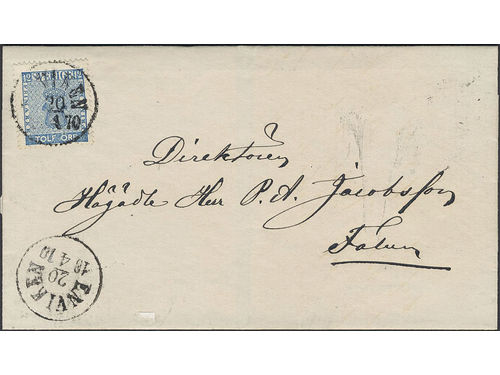 12 SVERIGE 12
20
4 70
TOLF ÖRE
Direktören
Högädle Herr P. A. Jacobsson
Falun
ENVIKEN
20
18 4 70